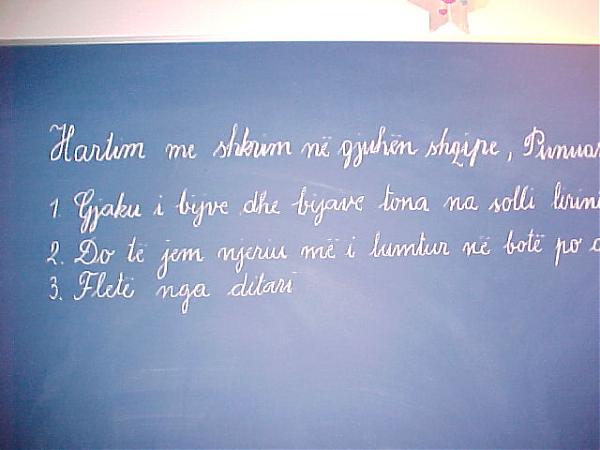 Hartim me shkrim në gjuhën shqipe, Punuar
1. Gjaku i bijve dhe bijave tona na solli lirinë
2. Do të jem njeriu më i lumtur në botë po
3. Fletë nga ditari